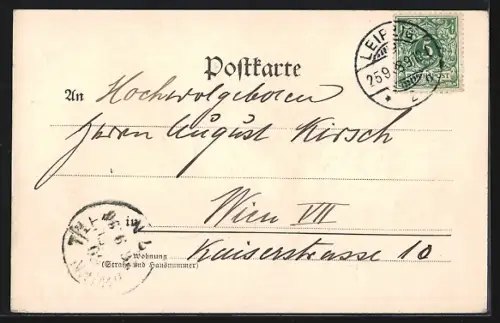 Postkarte
LEIPZIG
25.9.
2
5
An Hochwolgeboren
Herrn August Kirsch
in Wien VII
Wohnung
(Straße und Hausnummer)
Kaiserstrasse 10